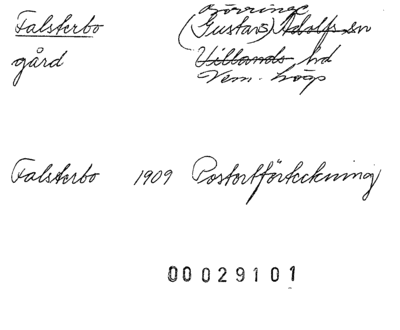 Börringe
Falsterbo (Gustavs) Adolfs sn
gård Villands hd
Vem. högs
Falsterbo 1909 Postortförteckning
00029101